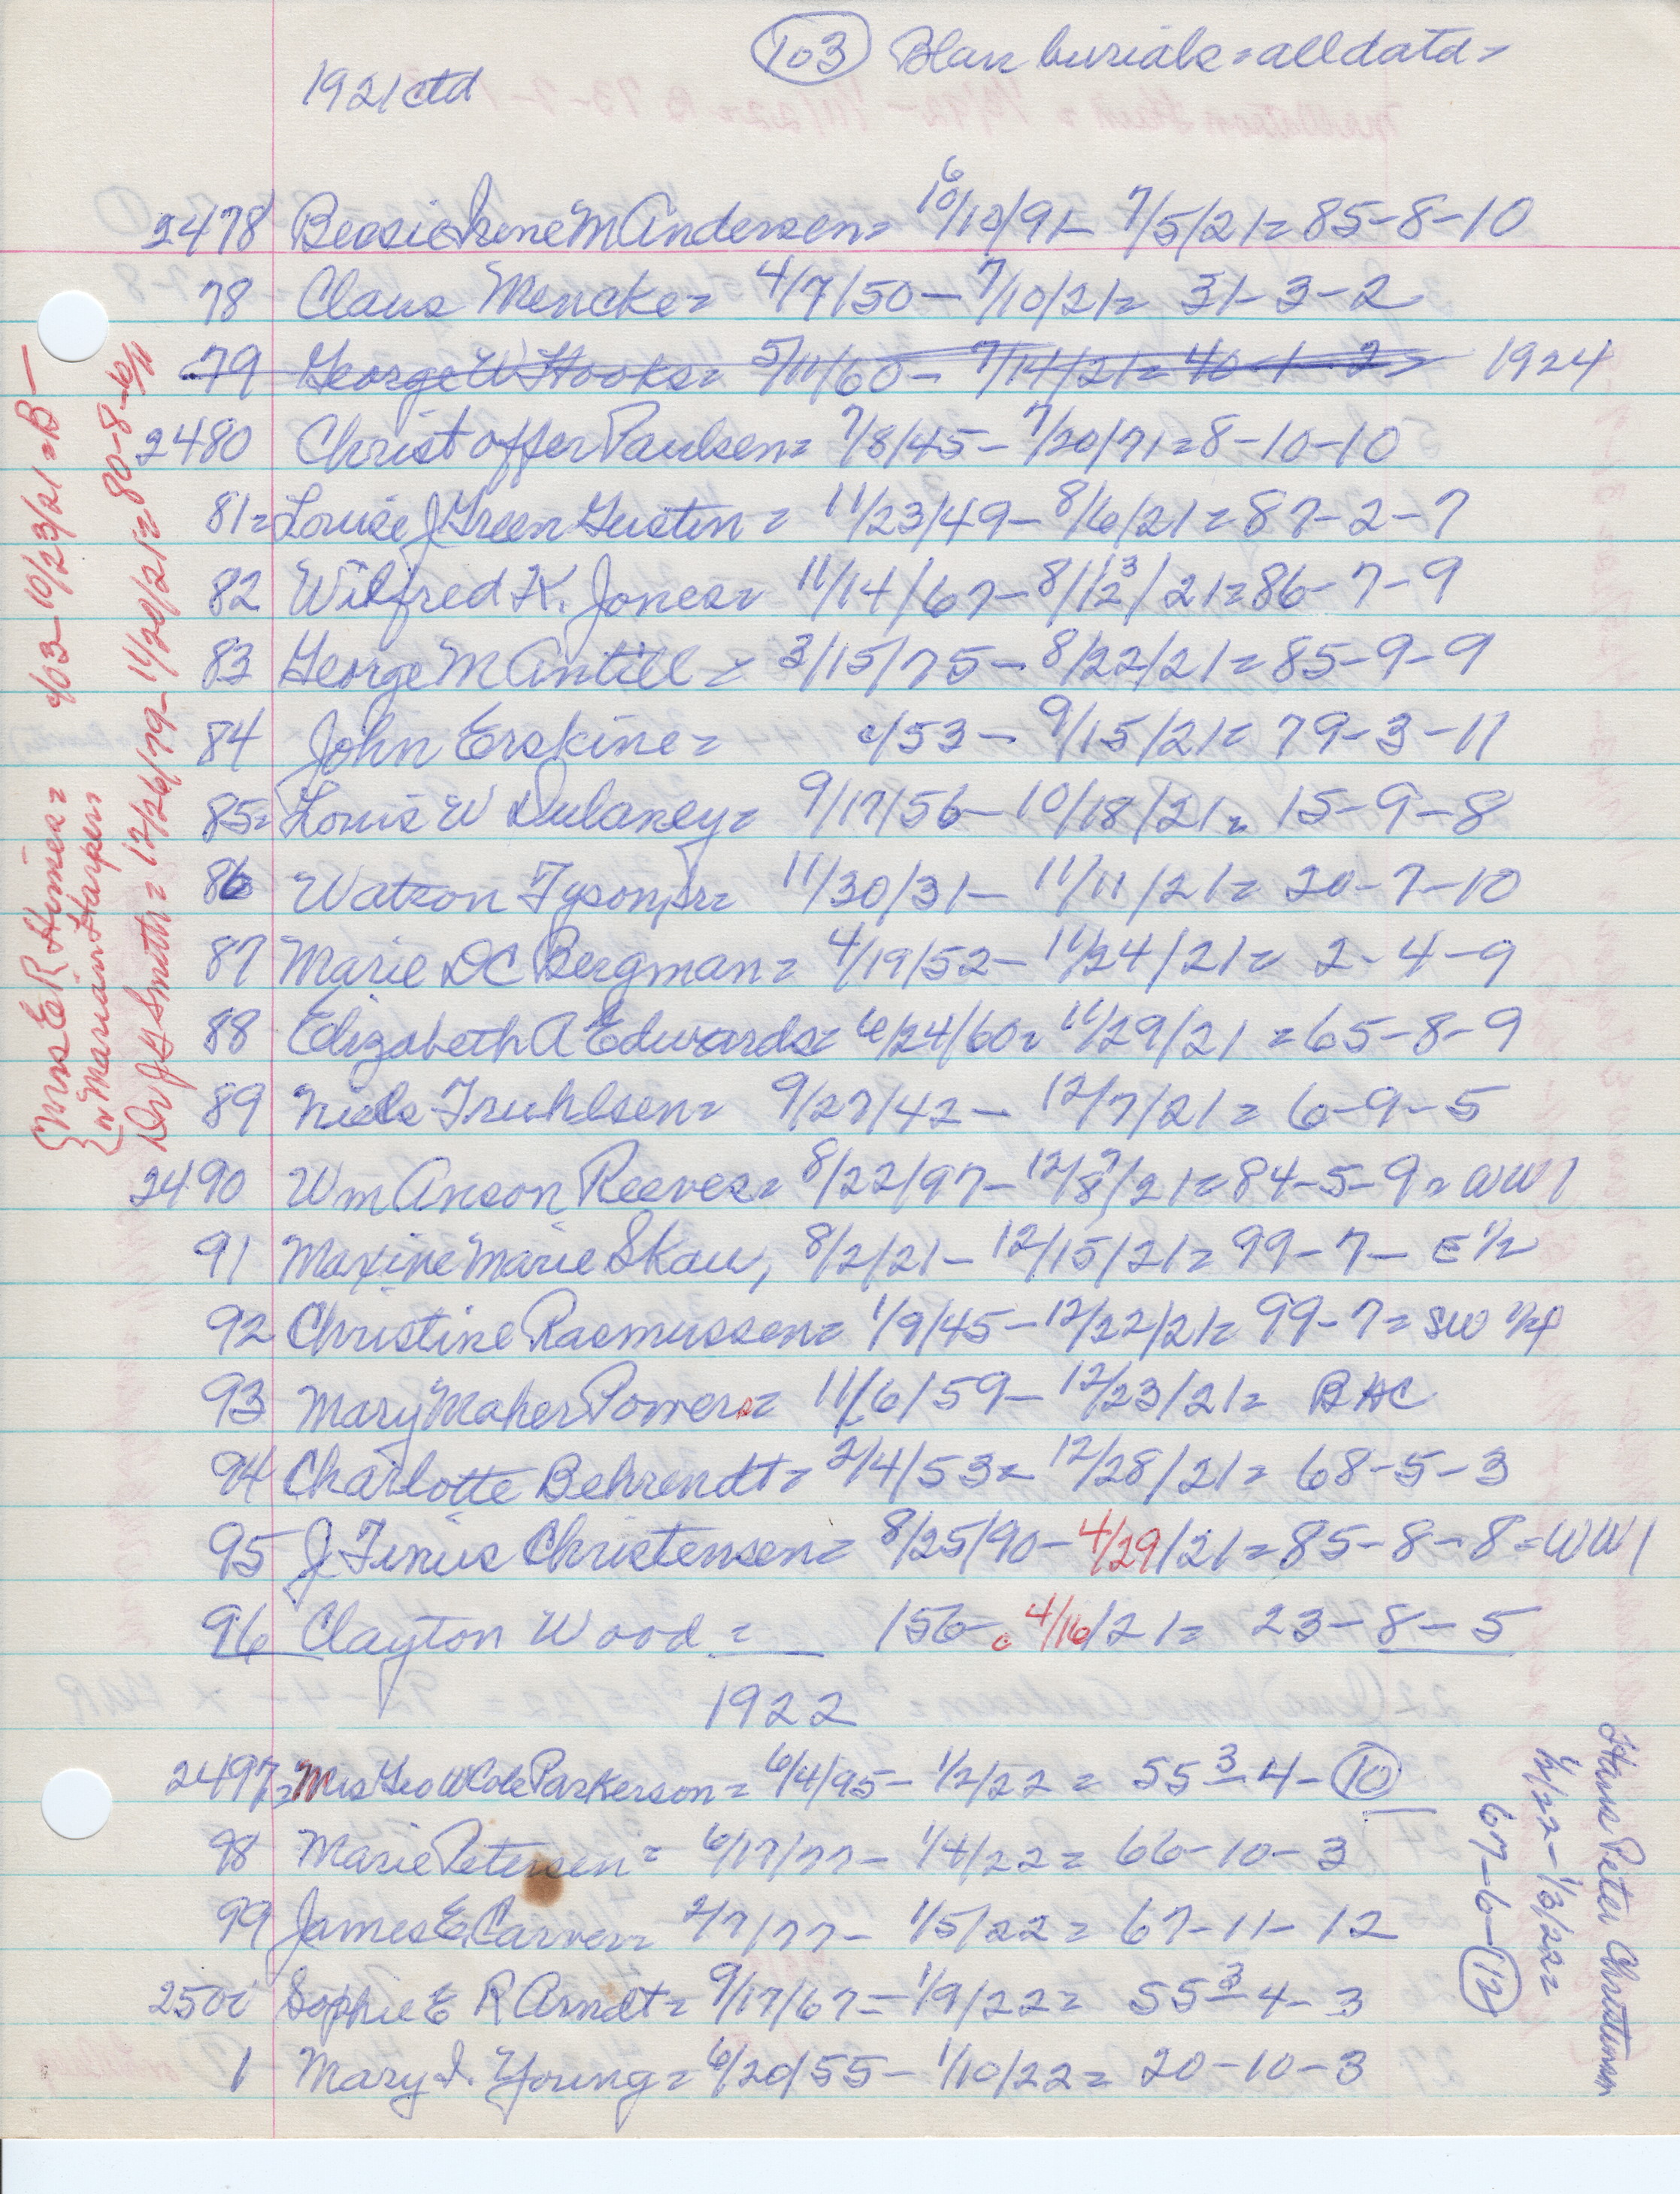 103 Blair burials = all data =
1921 ctd
2478 Bessie Irene M Andersen = 10/10/91 - 7/5/21 = 85-8-10
6
78 Claus Mencke = 4/7/50 - 7/10/21 = 31-3-2
79 George W Hooks = 5/11/60 - 7/14/21 = 40-1-2 1924
2480 Christoffer Paulsen = 7/8/45 - 7/20/71 = 8-10-10
81 = Louise J Green Gustin = 11/23/49 - 8/6/21 = 87-2-7
82 Wilfred K. Jones = 11/14/67 - 8/12/21 = 86-7-9
3
83 George M Antill = 3/15/75 - 8/22/21 = 85-9-9
84 John Erskine = c/53 - 9/15/21 = 79-3-11
85 = Louis W Dulaney = 9/17/56 - 10/18/21 = 15-9-8
86 Watson Tyson, Sr = 11/30/31 - 11/11/21 = 20-7-10
87 Marie DC Bergman = 4/19/52 - 11/24/21 = 2-4-9
88 Elizabeth A Edwards = 6/24/60 = 11/29/21 = 65-8-9
89 Niels Truhlsen = 9/27/42 - 12/7/21 = 6-9-5
2490 Wm Anson Reeves = 8/22/97 - 12/8/21 = 84-5-9 = WW1
7
91 Maxine Marie Skau, 8/2/21 - 12/15/21 = 99-7- E 1/2
92 Christine Rasmussen = 1/9/45 - 12/22/21 = 99-7 = SW 1/4
93 Mary Maher Powers = 11/6/59 - 12/23/21 = BHC
94 Charlotte Behrendt = 2/4/53 = 12/28/21 = 68-5-3
95 J. Tinius Christensen = 8/25/90 - 4/29/21 = 85-8-8 = WW1
96 Clayton Wood = 156- c 4/16/21 = 23-8-5
1922
2497 = Mrs Geo W Cole Parkerson = 6/4/95 - 1/2/22 = 55 3-4-10
98 Marie Petersen = 6/17/77 - 1/4/22 = 66-10-3
99 James E Carver = 2/7/77 - 1/5/22 = 67-11-12
2500 Sophie E R Arndt = 9/17/67 = 1/9/22 = 55 3-4-3
1 Mary I. Young = 6/20/55 - 1/10/22 = 20-10-3
Mrs E R Himes =
" Marian Harpen 403-10/23/21 = B-
Dr J G Smith = 12/26/79 - 11/20/21 = 80-8-6/11
Hans Peter Christensen
1/1/22 - 1/3/22 =
67-6-12